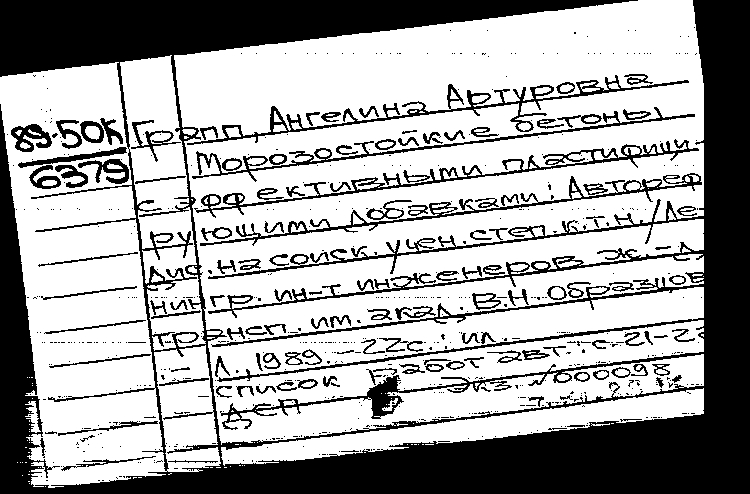 89-50К
6379
Грапп, Ангелина Артуровна
Морозостойкие бетоны
с эффективными пластифици-
рующими добавками: Автореф
дис. на соиск. учен. степ. к.т.н. / Ле-
нингр. ин-т инженеров ж.-д.
трансп. им. акад. В.Н. Образцов
.- Л., 1989. - 22с.: ил. -
список работ авт.: с. 21-22
ДСП Экз. №000098